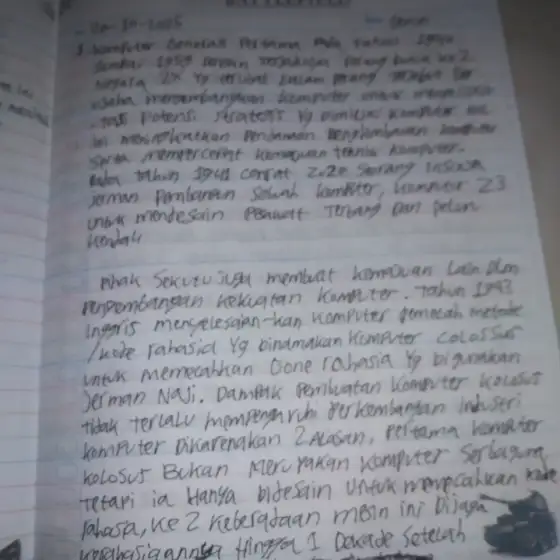 BATTLEFIELD
20-10-2025 Senin
1. Komputer Generasi Pertama Pada tahun 1940
sampai 1959 Dengan terjadinya Perang Dunia ke 2
negara 2x Yg terlibat dalam perang tersebut ber
usaha mengembangkan komputer untuk
Potensi strategis Yg dimiliki komputer
ini meningkatkan Pendanaan Pengembangan komputer
serta mempercepat kemajuan teknik komputer.
Pada tahun 1941 Seorang
Jerman Sebuah komputer, komputer Z3
untuk mendesain Pesawat Terbang Dan peluru
kendali
Pihak Sekutu juga membuat kemajuan Lain Dlm
Pengembangan kekuatan komputer. Tahun 1943
Inggris menyelesaian-kan komputer pemecah metode
/kode rahasia Yg binamakan komputer colossus
untuk memecahkan rahasia Yg bigunakan
Jerman Nazi. Dampak Pembuatan komputer kolosus
tidak terlalu mempengaruhi Perkembangan Industri
komputer Dikarenakan 2 Alasan, Pertama komputer
kolosus Bukan Merupakan komputer Serbaguna
tetapi ia Hanya bidesain untuk memecahkan kode
rahasa, ke 2 keberadaan mesin ini Dijaga
kerahasiaannya Hingga 1 Dekade Setelah